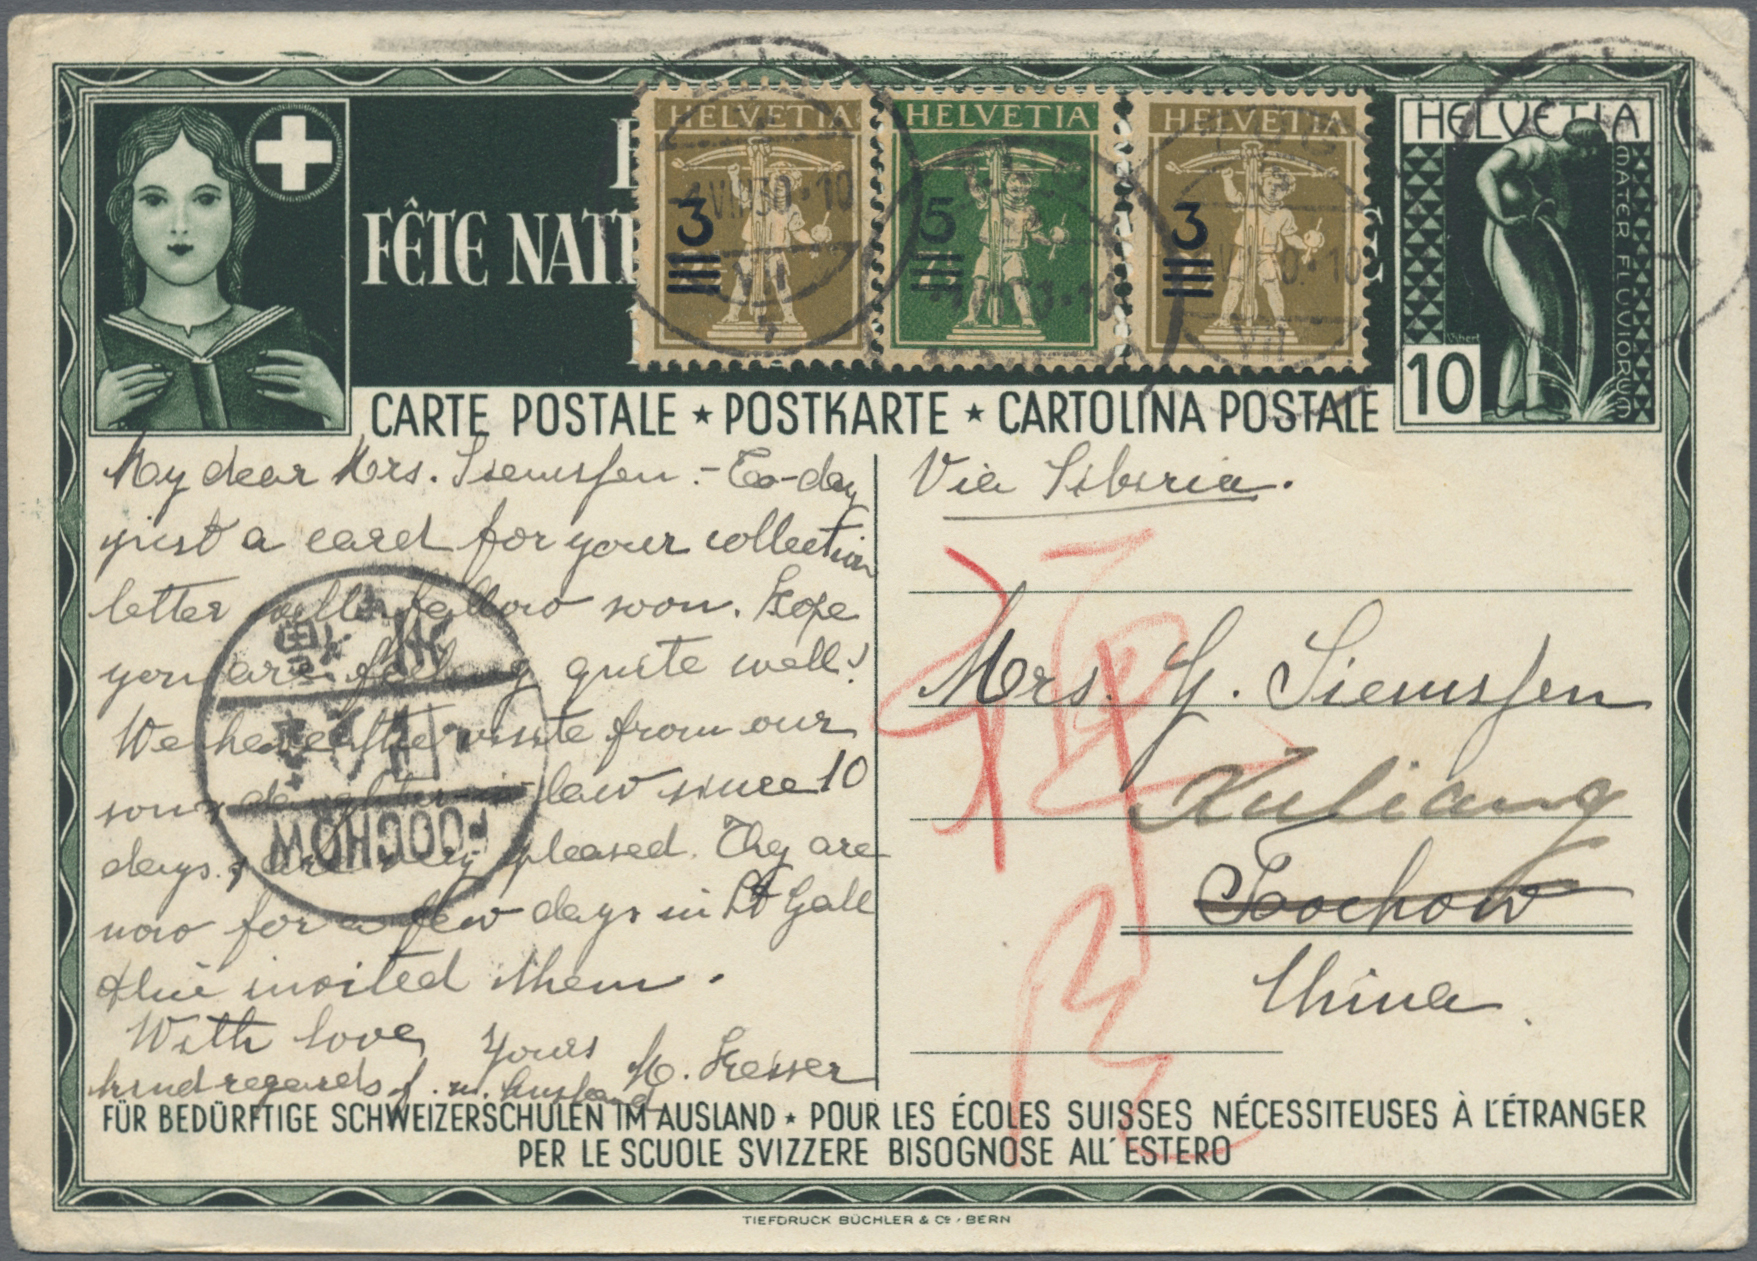 FÊTE NATI
HELVETIA
3
HELVETIA
5
HELVETIA
3
HELVETIA
MATER FLUVIORUM
10
CARTE POSTALE ★ POSTKARTE ★ CARTOLINA POSTALE
My dear Mrs. Siemssen :- To-day
just a card for your collection
letter will follow soon. Hope
you are feeling quite well!
We have the visite from our
son, daughter in law since 10
days, are very pleased. They are
now for a few days in St Gall
Alice invited them.
With love, yours
kind regards f. m. husband M.
FOOCHOW
Via Siberia.
Mrs. G. Siemssen
Kuliang
Foochow
China
FÜR BEDÜRFTIGE SCHWEIZERSCHULEN IM AUSLAND ★ POUR LES ÉCOLES SUISSES NÉCESSITEUSES À L'ÉTRANGER
PER LE SCUOLE SVIZZERE BISOGNOSE ALL'ESTERO
TIEFDRUCK BÜCHLER & Cº, BERN